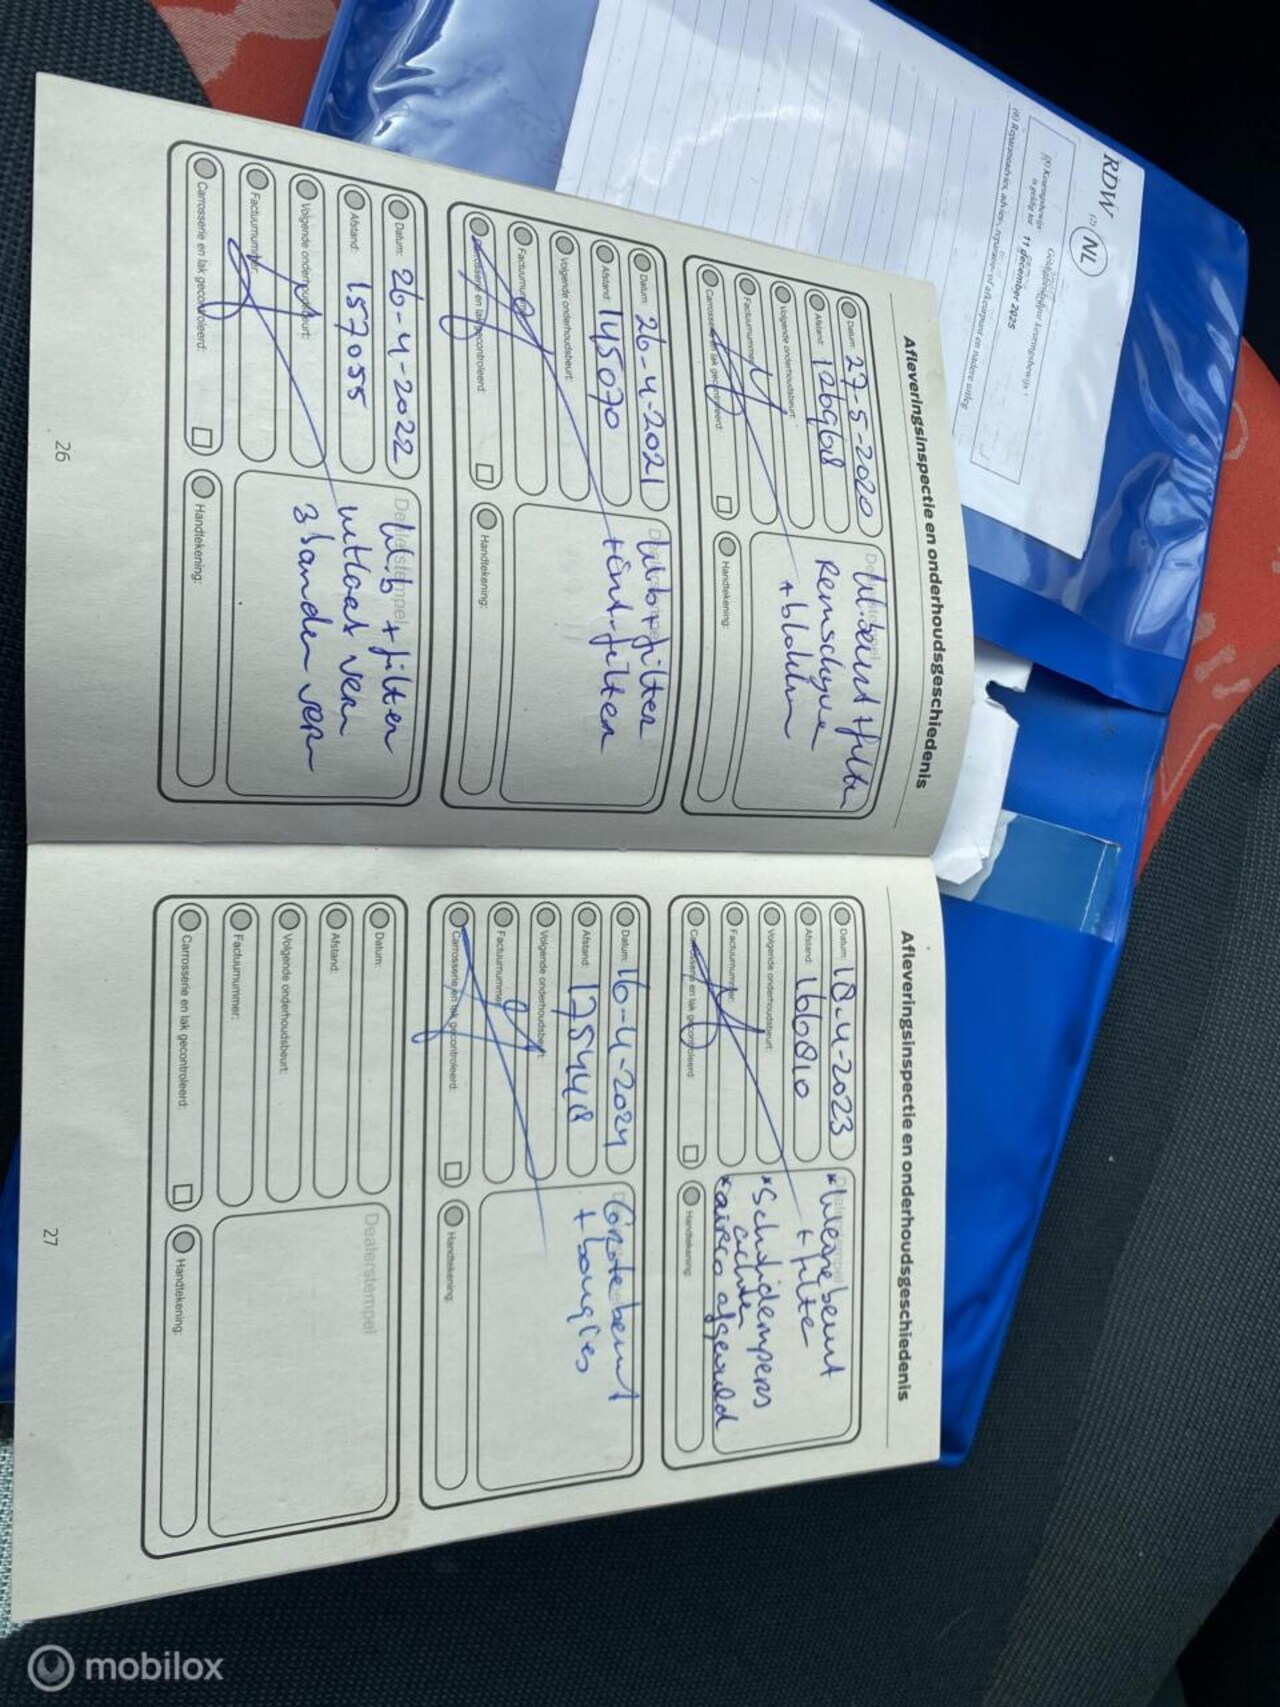 RDW
(7)
NL
11 december 2025
Afleveringsinspectie en onderhoudsgeschiedenis
Datum: 27-5-2020
Afstand: 126968
Volgende onderhoudsbeurt:
Factuurnummer:
Carrosserie en lak gecontroleerd:
W.beurt + filter
Remschyven
+ blokken
Handtekening:
Datum: 26-4-2021
Afstand: 145070
Volgende onderhoudsbeurt:
Factuurnummer:
Carrosserie en lak gecontroleerd:
W.b + filter
+ int-filter
Handtekening:
Datum: 26-4-2022
Afstand: 157055
Volgende onderhoudsbeurt:
Factuurnummer:
Carrosserie en lak gecontroleerd:
Dealerstempel
W.b + filter
uitlaat vern
3 banden vern
Handtekening:
26
Afleveringsinspectie en onderhoudsgeschiedenis
Datum: 18-4-2023
Afstand: 166810
Volgende onderhoudsbeurt:
Factuurnummer:
Carrosserie en lak gecontroleerd:
*kleine beurt
+ filter
*Schokdempers
achter
*airco afgevuld
Handtekening:
Datum: 16-4-2024
Afstand: 175448
Volgende onderhoudsbeurt:
Factuurnummer:
Carrosserie en lak gecontroleerd:
Grote beurt
+ bougies
Handtekening:
Datum:
Afstand:
Volgende onderhoudsbeurt:
Factuurnummer:
Carrosserie en lak gecontroleerd:
Dealerstempel
Handtekening:
27
mobilox